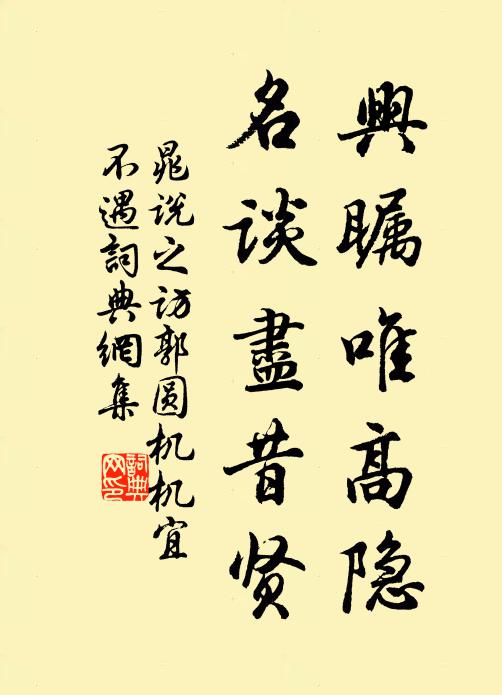 興瞩唯高隐
名谈盡昔贤
晁说之访郭圆机机宜
不遇詞典網集
詞典网印